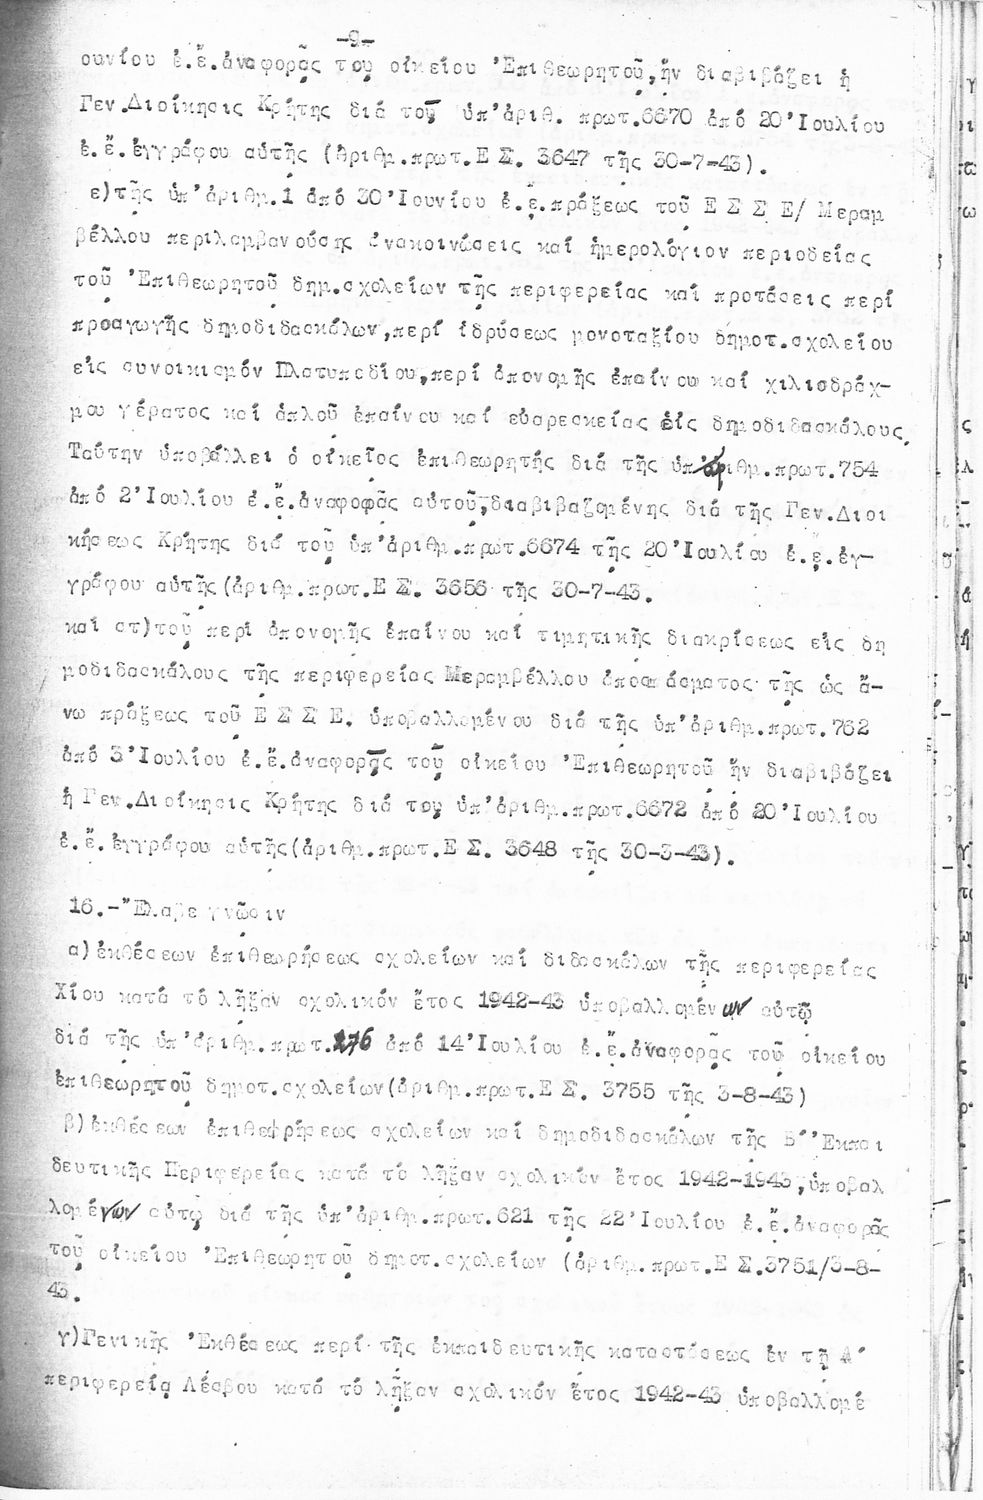 -9-
ουνίου ἐ.ἔ.ἀναφορᾶς τοῦ οἰκείου 'Επιθεωρητοῦ,ἥν διαβιβάζει ἡ
Γεν.Διοίκησις Κρήτης διά τοῦ ὑπ'ἀριθ. πρωτ.6670 ἀπό 20 'Ιουλίου
ἐ.ἔ.ἐγγράφου αὐτῆς (ἀριθμ.πρωτ.Ε Σ. 3647 τῆς 30-7-43).
ε)τῆς ὑπ'ἀριθμ.1 ἀπό 30 'Ιουνίου ἐ.ἔ.πράξεως τοῦ Ε Σ Σ Ε/ Μεραμ
βέλλου περιλαμβανούσης ἀνακοινώσεις καί ἡμερολόγιον περιοδείας
τοῦ 'Επιθεωρητοῦ δημ.σχολείων τῆς περιφερείας καί προτάσεις περί
προαγωγῆς δημοδιδασκάλων,περί ἱδρύσεως μονοταξίου δημοτ.σχολείου
εἰς συνοικισμόν Πλατυποδίου,περί ἀπονομῆς ἐπαίνου καί χιλιοδράχ-
μου γέρατος καί ἁπλοῦ ἐπαίνου καί εὐαρεσκείας εἰς δημοδιδασκάλους.
Ταύτην ὑποβάλλει ὁ οἰκεῖος ἐπιθεωρητής διά τῆς ὑπ'ἀριθμ.πρωτ.754
ἀπό 2 'Ιουλίου ἐ.ἔ.ἀναφοφᾶς αὐτοῦ,διαβιβαζομένης διά τῆς Γεν.Διοι
κήσεως Κρήτης διά τοῦ ὑπ'ἀριθμ.πρωτ.6674 τῆς 20 'Ιουλίου ἐ.ἔ.ἐγ-
γράφου αὐτῆς(ἀριθμ.πρωτ.Ε Σ. 3656 τῆς 30-7-43.
καί στ)τοῦ περί ἀπονομῆς ἐπαίνου καί τιμητικῆς διακρίσεως εἰς δη
μοδιδασκάλους τῆς περιφερείας Μεραμβέλλου ἀποσπάσματος τῆς ὡς ἄ-
νω πράξεως τοῦ Ε Σ Σ Ε. ὑποβαλλομένου διά τῆς ὑπ'ἀριθμ.πρωτ.762
ἀπό 3 'Ιουλίου ἐ.ἔ.ἀναφορᾶς τοῦ οἰκείου 'Επιθεωρητοῦ ἥν διαβιβάζει
ἡ Γεν.Διοίκησις Κρήτης διά του ὑπ'ἀριθμ.πρωτ.6672 ἀπό 20 'Ιουλίου
ἐ.ἔ.ἐγγράφου αὐτῆς(ἀριθμ.πρωτ.Ε Σ. 3648 τῆς 30-3-43).
16.-"Ελαβε γνῶσιν
α)ἐκθέσεων ἐπιθεωρήσεως σχολείων καί διδασκάλων τῆς περιφερείας
Χίου κατά τό λῆξαν σχολικόν ἔτος 1942-43 ὑποβαλλομένων αὐτῷ
διά τῆς ὑπ'ἀριθμ.πρωτ.276 ἀπό 14 'Ιουλίου ἐ.ἔ.ἀναφορᾶς τοῦ οἰκείου
ἐπιθεωρητοῦ δημοτ.σχολείων(ἀριθμ.πρωτ.Ε Σ. 3755 τῆς 3-8-43)
β)ἐκθέσεων ἐπιθεωρήσεως σχολείων καί δημοδιδασκάλων τῆς Β' 'Εκπαι
δευτικῆς Περιφερείας κατά τό λῆξαν σχολικόν ἔτος 1942-1943,ὑποβαλ
λομένων αὐτῷ διά τῆς ὑπ'ἀριθμ.πρωτ.621 τῆς 22 'Ιουλίου ἐ.ἔ.ἀναφορᾶς
τοῦ οἰκείου 'Επιθεωρητοῦ δημοτ.σχολείων (ἀριθμ.πρωτ.Ε Σ.3751/3-8-
43.
γ)Γενικῆς 'Εκθέσεως περί τῆς ἐκπαιδευτικῆς καταστάσεως ἐν τῇ Α'
περιφερείᾳ Λέσβου κατά τό λῆξαν σχολικόν ἔτος 1942-43 ὑποβαλλομέ